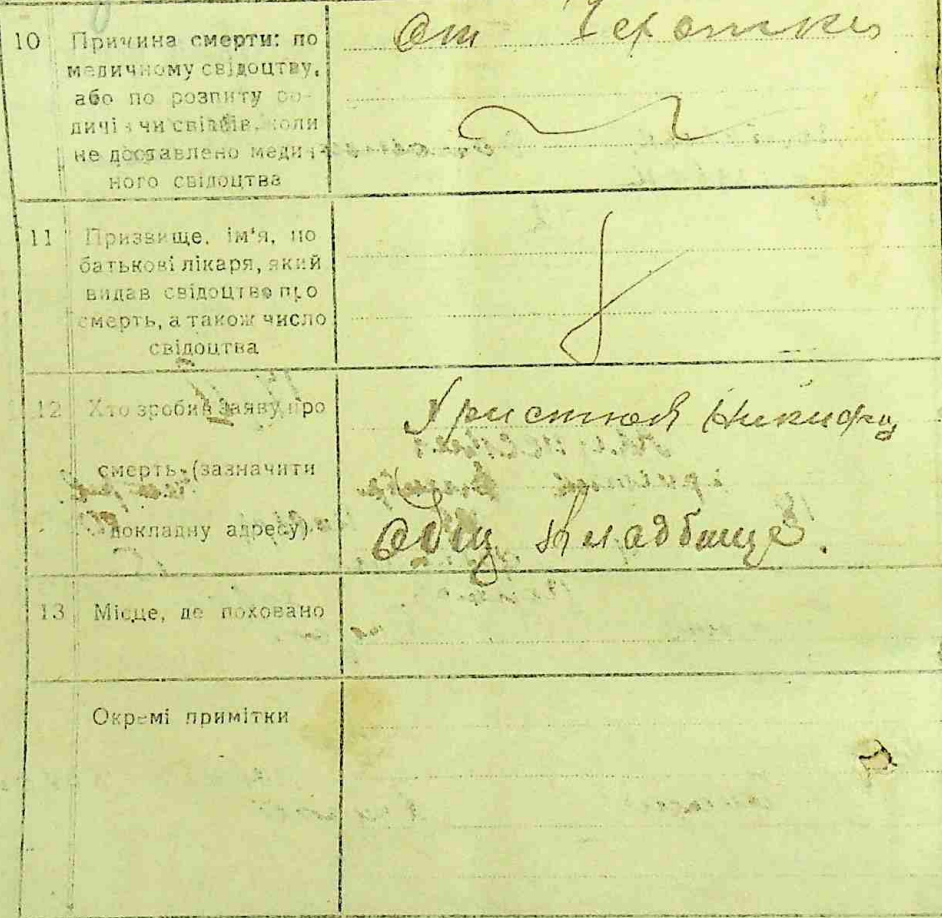 10 Причина смерти: по
медичному свідоцтву,
або по розпиту ро-
дичів чи свідків, коли
не доставлено медич-
ного свідоцтва
от Чехотки
11 Призвище, ім'я, по
батькові лікаря, який
видав свідоцтво про
смерть, а також число
свідоцтва
12 Хто зробив заяву про
смерть (зазначити
докладну адресу)
Никифор
Общ Кладбище.
13 Місце, де поховано
Окремі примітки